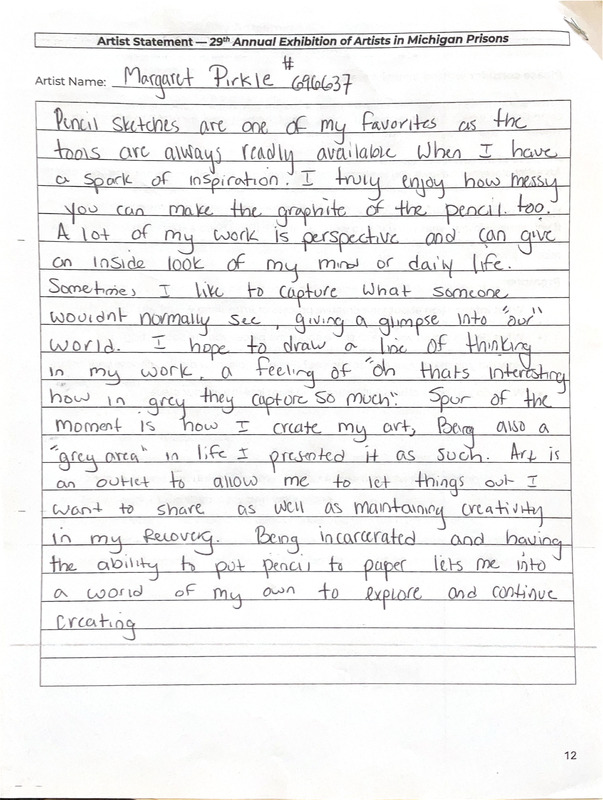 Artist Statement — 29th Annual Exhibition of Artists in Michigan Prisons
Artist Name: Margaret Pirkle # 696637
Pencil sketches are one of my favorites as the
tools are always readly available when I have
a spark of inspiration. I truly enjoy how messy
you can make the graphite of the pencil too.
A lot of my work is perspective and can give
an inside look of my mind or daily life.
Sometimes I like to capture what someone
wouldnt normally see, giving a glimpse into "our"
world. I hope to draw a line of thinking
in my work, a feeling of "oh thats interesting
how in grey they capture so much". Spur of the
moment is how I create my art, Being also a
"grey area" in life I presented it as such. Art is
an outlet to allow me to let things out I
want to share as well as maintaning creativity
in my Recovery. Being incarcerated and having
the ability to put pencil to paper lets me into
a world of my own to explore and continue
creating
12